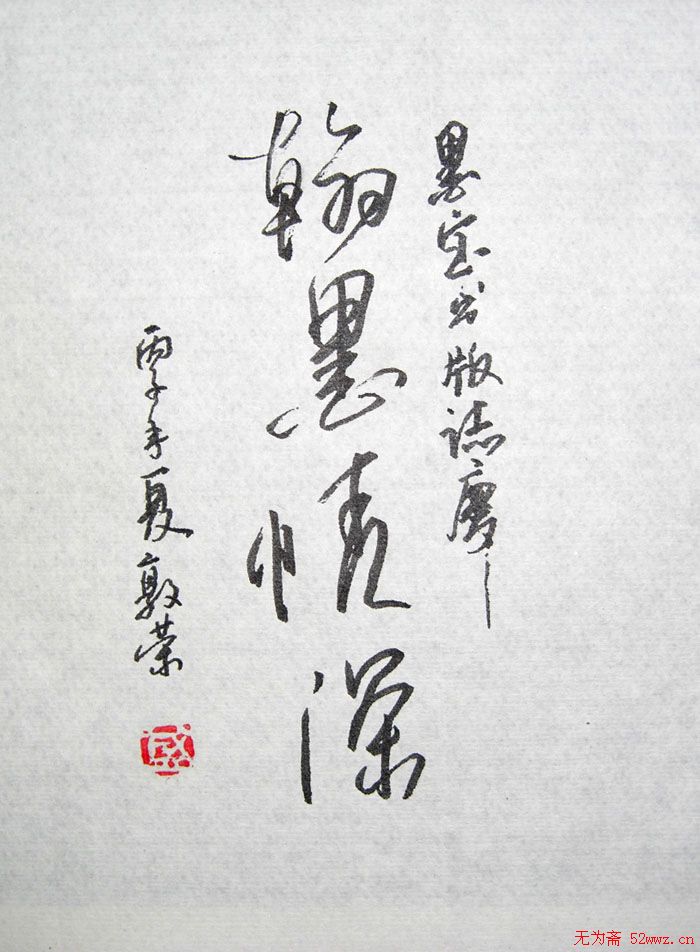 墨宝出版誌庆
翰墨情深
丙子年夏敦荣
无为斋 52wwz.cn